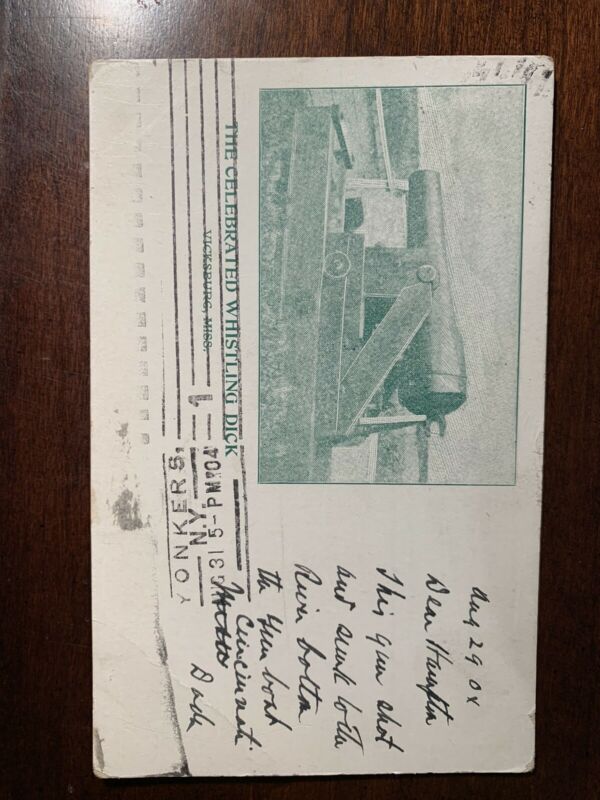 THE CELEBRATED WHISTLING DICK
VICKSBURG, MISS.
YONKERS,
N.Y.
31 5-PM '04
1
Aug 29 04
Dear Hampton
This gun shot
and sunk to the
River bottom
the Gun boat
Cincinnati